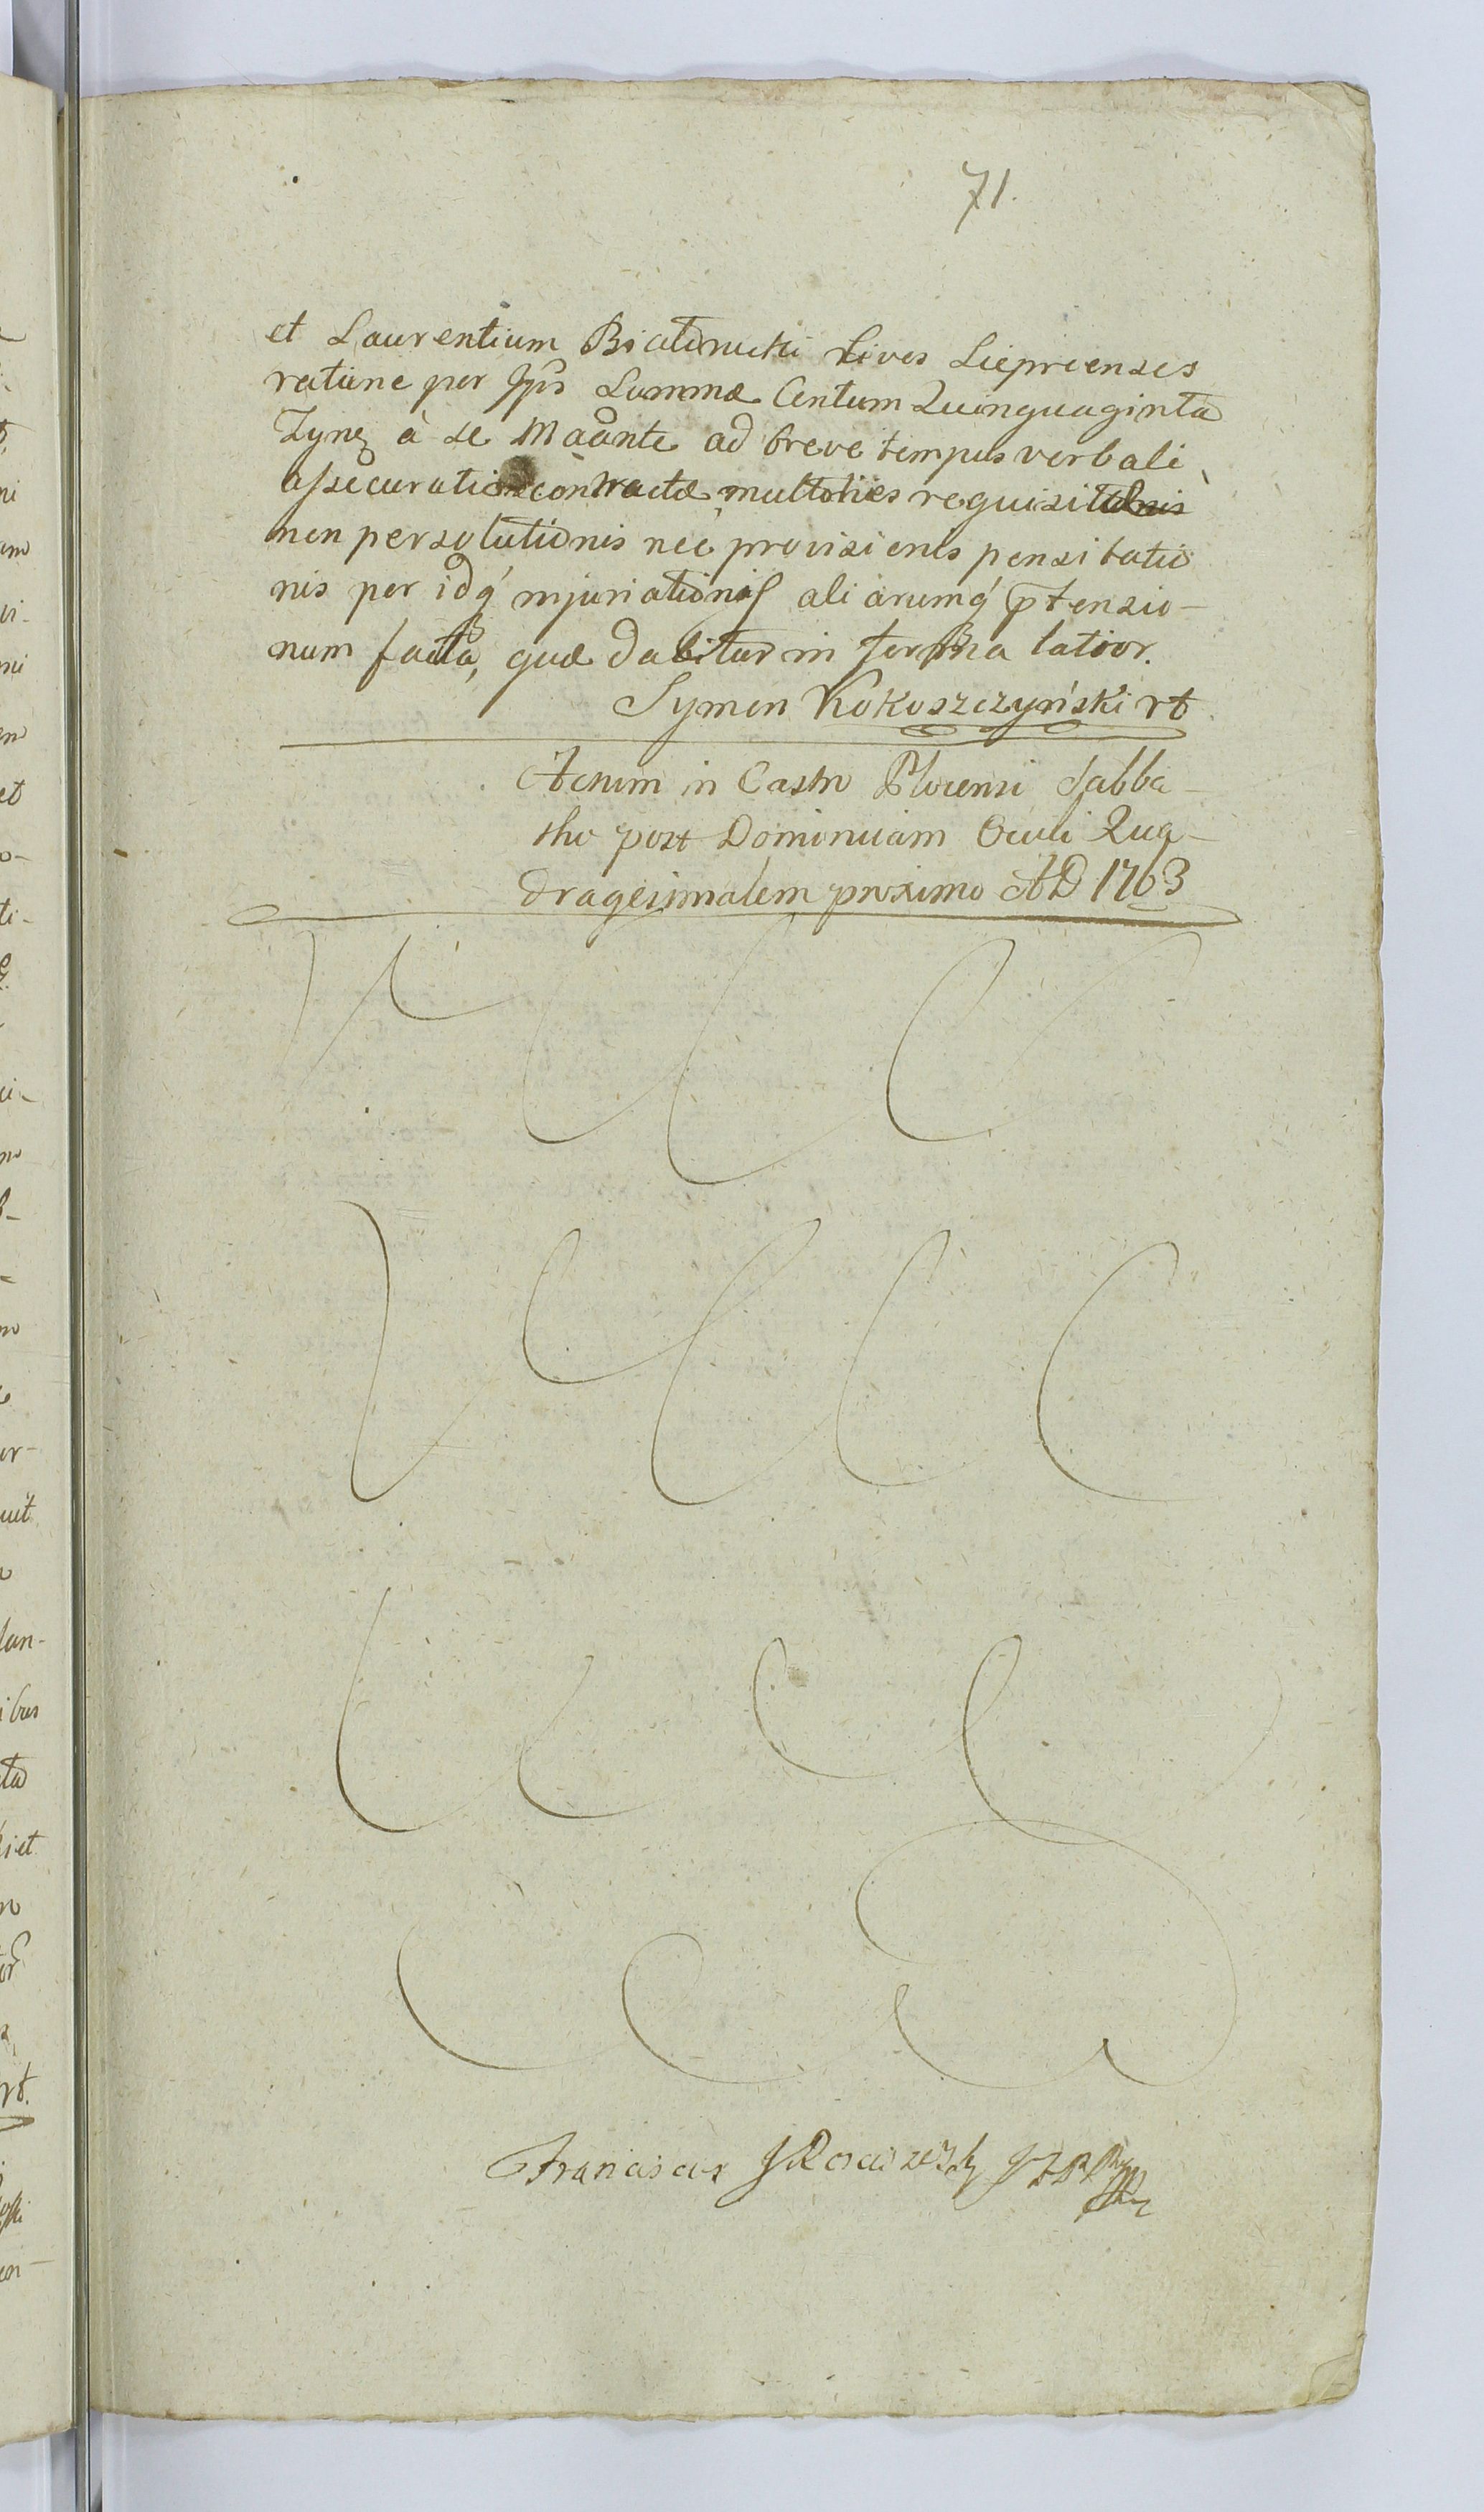 71.
et Laurentium Cives Sieprcenses
ratione per Ips Summæ Centum Quinquaginta
à se Maânte ad breve tempus verbali
assecuratione contractæ multoties requisitæ
non persolutionis nec provisionis pensitatio
nis per idq́ injuriationis aliarumq́ ptensio-
num facta, quæ dabitur in forma latior.
Symon Kokoszczyński rt
Actum in Castro Plocensi Sabba-
tho post Dominicam Oculi Qua-
dragesimalem proximo AD 1763
Franciscus